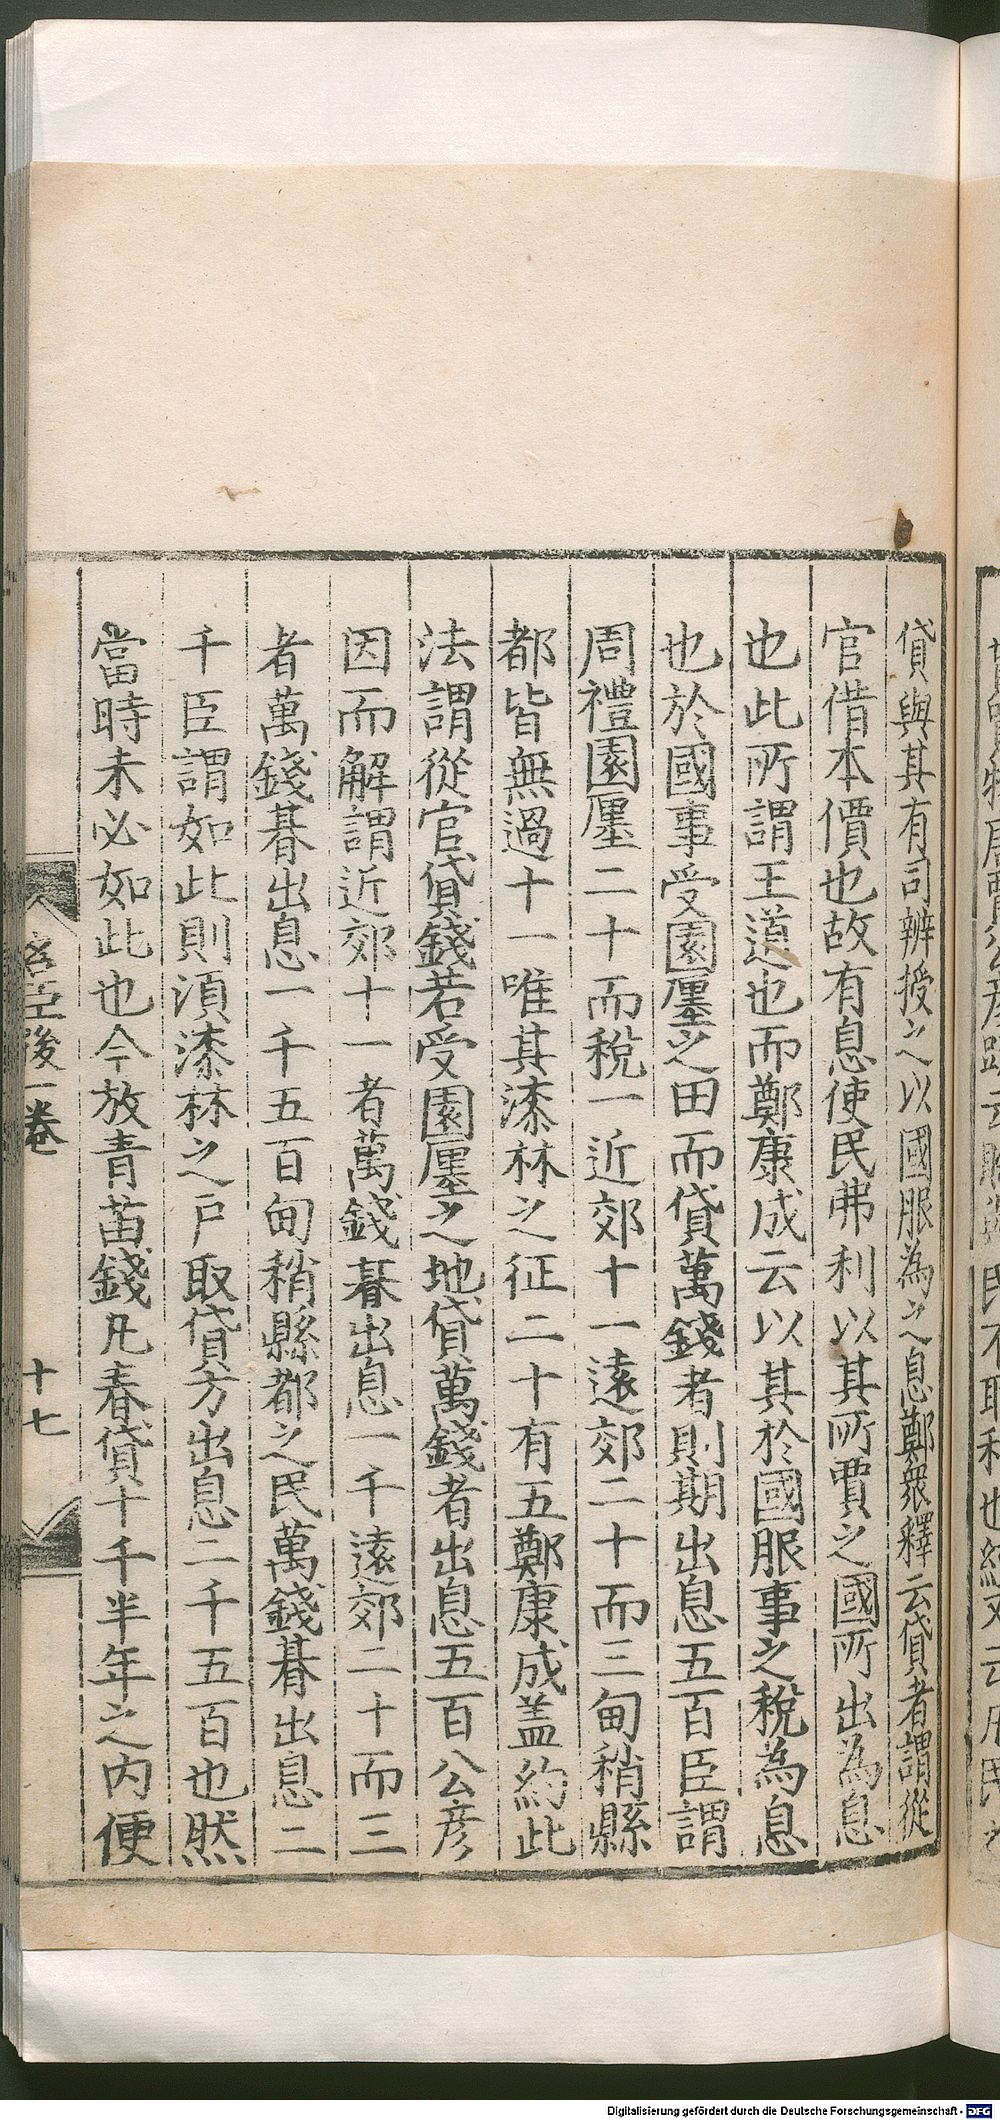 貸與其有司辨授之以國服為之息鄭衆釋云貸者謂從
官借本價也故有息使民弗利以其所賈之國所出為息
也此所謂王道也而鄭康成云以其於國服事之稅為息
也於國事受園廛之田而貸萬錢者則期出息五百臣謂
周禮園廛二十而稅一近郊十一遠郊二十而三甸稍縣
都皆無過十一唯其漆林之征二十有五鄭康成盖約此
法謂從官貸錢若受園廛之地貸萬錢者出息五百公彦
因而解謂近郊十一者萬錢朞出息一千遠郊二十而三
者萬錢朞出息一千五百甸稍縣都之民萬錢朞出息二
千臣謂如此則湏漆林之户取貸方出息二千五百也然
當時未必如此也今放青苗錢凡春貸十千半年之内便
名臣後一卷
十七
Digitalisierung gefördert durch die Deutsche Forschungsgemeinschaft - DFG